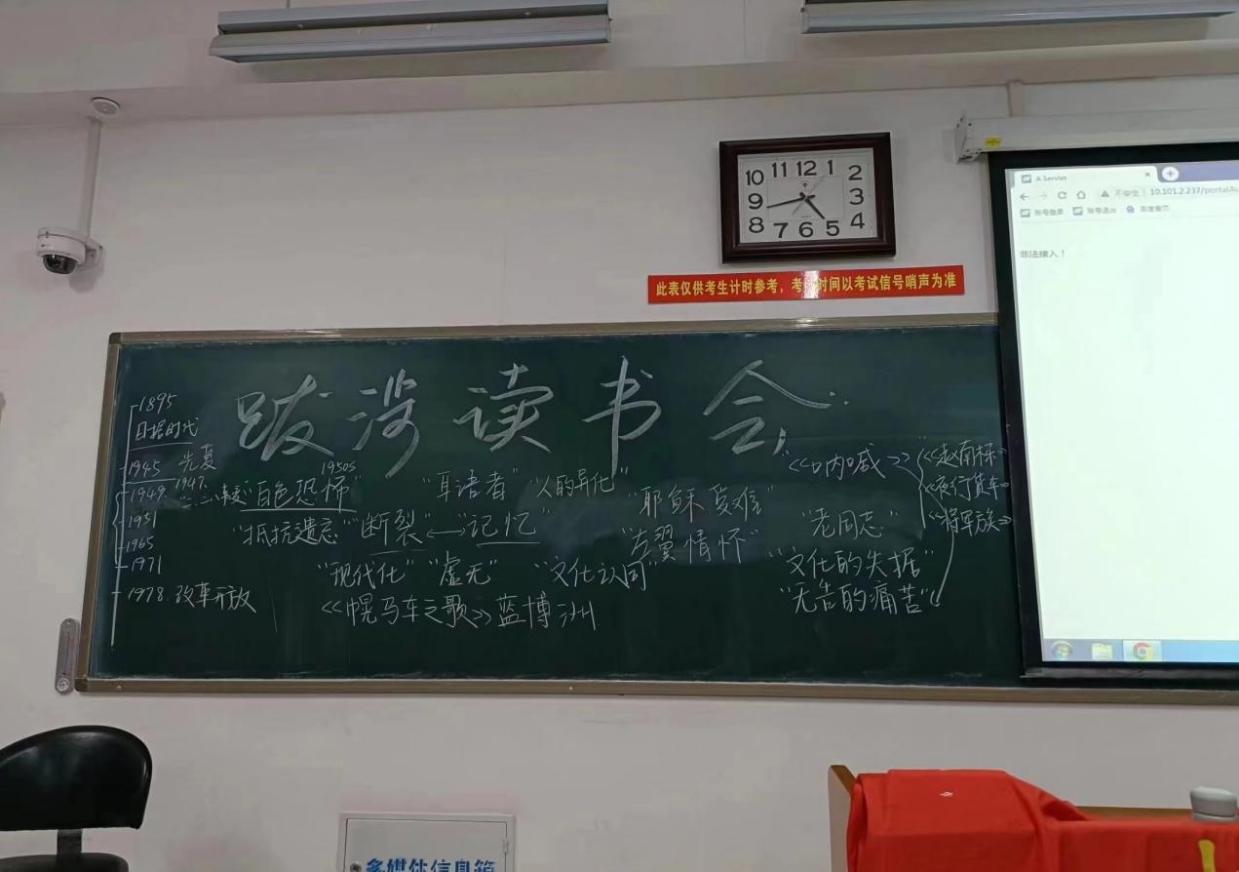 11 12 1
10 2
9 3
8 4
7 6 5
A Servlet
10.101.2.237/portalAu
非法接入！
此表仅供考生计时参考，考 时间以考试信号哨声为准
跋涉读书会
1895
日据时代
1945 光复
1947
1949 二二八事变
1951
1965
1971
1978 改革开放
1950s
"白色恐怖"
"耳语者" "人的异化"
"抵抗遗忘" "断裂"←→"记忆"
"耶稣受难"
"左翼情怀"
"现代化" "虚无" "文化认同"
《幌马车之歌》蓝博洲
《呐喊》
《赵南栋》
《夜行货车》
《将军族》
"老同志"
"文化的失据"
"无告的痛苦"
多媒体信息箱